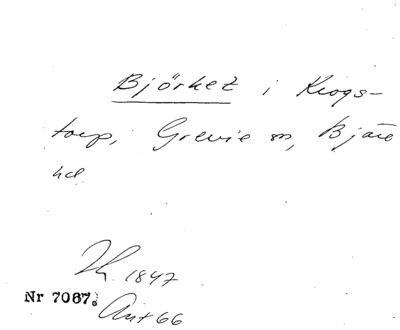 Björket i Krogs-
torp, Grevie sn, Bjäre
hd
1847
Nr 7067.
Ant 66